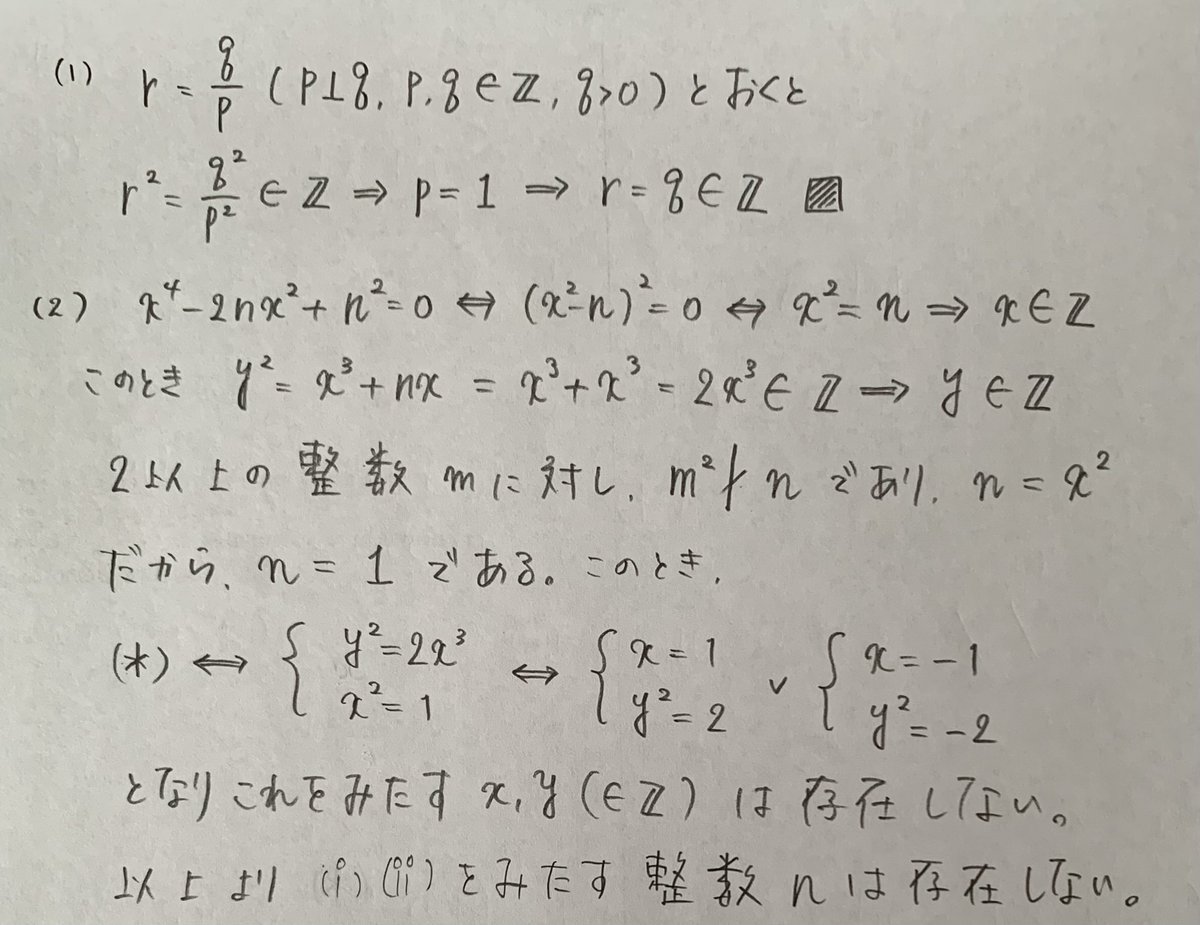 (1) r = q/p (p⊥q, p, q ∈ ℤ, q>0) とおくと
r² = q²/p² ∈ ℤ ⇒ p = 1 ⇒ r = q ∈ ℤ ▨
(2) x⁴-2nx²+n²=0 ⇔ (x²-n)²=0 ⇔ x²=n ⇒ x∈ℤ
このとき y²= x³+nx = x³+x³ = 2x³ ∈ ℤ ⇒ y ∈ ℤ
2以上の整数mに対し, m²∤n であり, n = x²
だから, n = 1 である。このとき,
(*) ⇔ { y²=2x³, x²=1 ⇔ { x=1, y²=2 ∨ { x=-1, y²=-2
となりこれをみたす x, y (∈ℤ) は存在しない。
以上より (i)(ii) をみたす整数nは存在しない。